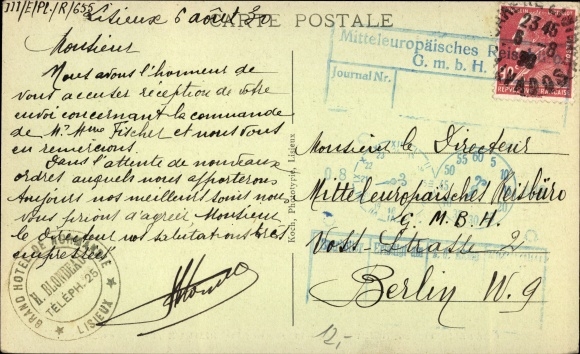 III/E/Pl./R/655
CARTE POSTALE
Lisieux 6 août 30
Monsieur
Nous avons l'honneur de
vous accuser réception de votre
envoi concernant la commande
de Mr Mme Fischer et nous vous
en remercions.
Dans l'attente de nouveaux
ordres auxquels nous apporterons
toujours nos meilleurs soins nous
vous prions d'agréer Monsieur
le Directeur nos salutations très
empressées
GRAND HOTEL DE NORMANDIE
H. BLONDEAU
TÉLÉPH. 25
LISIEUX
Koch, Phototype, Lisieux
Mitteleuropäisches Reisebüro
G. m. b. H.
Journal Nr.
23 45
6 - 8
30
Monsieur le Directeur
Mitteleuropaïsches Reisbüro
G. M. B. H.
Voss Strasse 2
Berlin W. 9
12,-